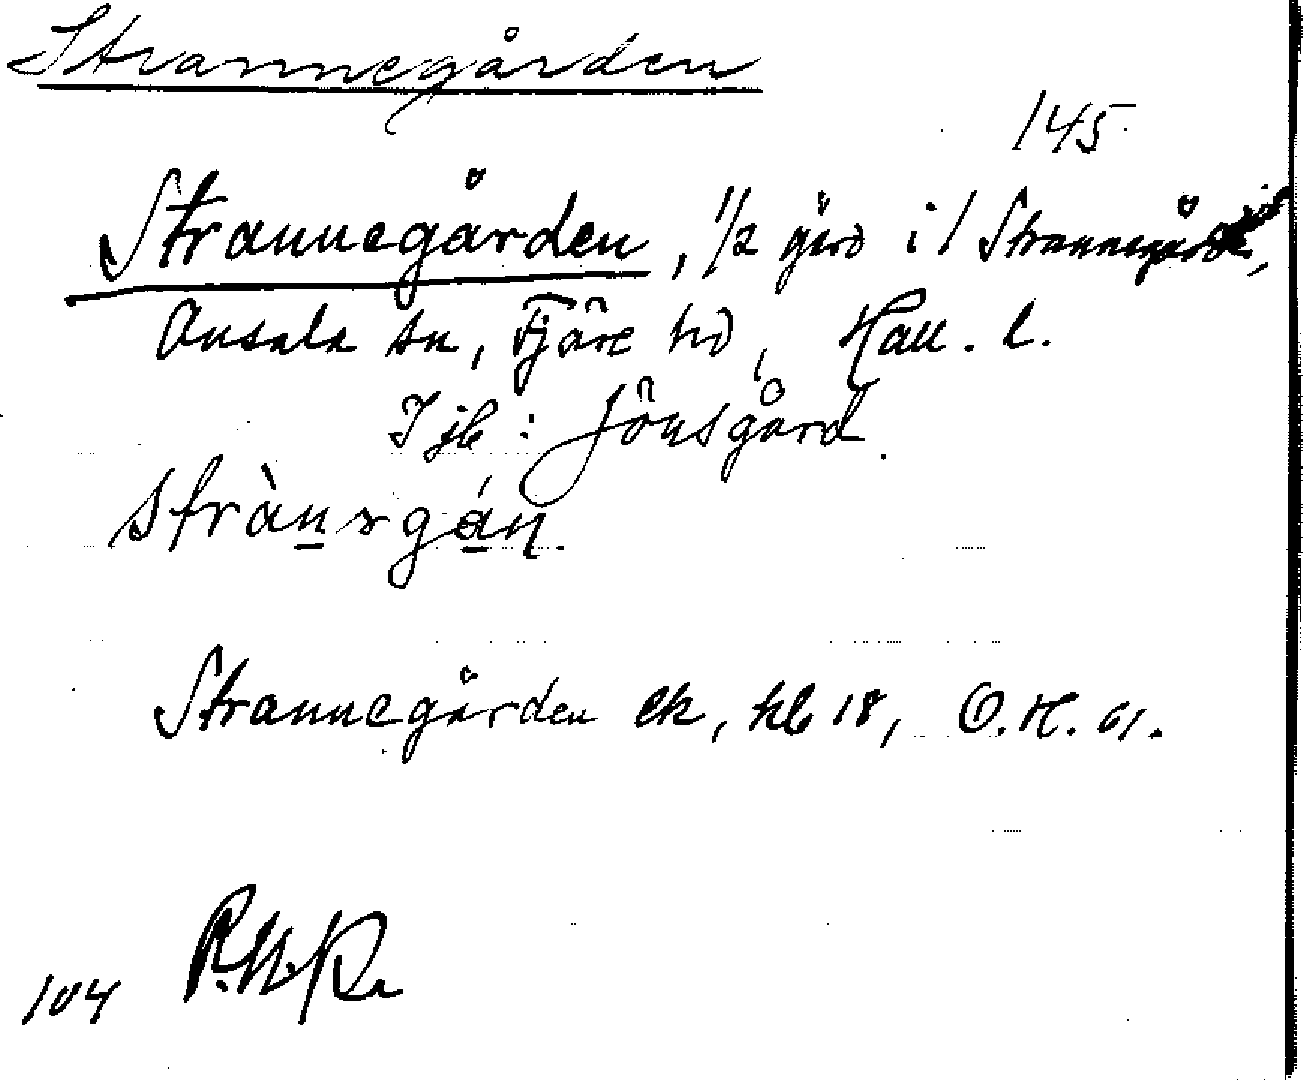 Strannegården
145.
Strannegården, 1/2 gård i 1 Strannegård,
Onsala sn, Fjäre hd, Hall. l.
I jb: Jönsgård.
Strannegården ek, hb 18, O.H. 61.
104